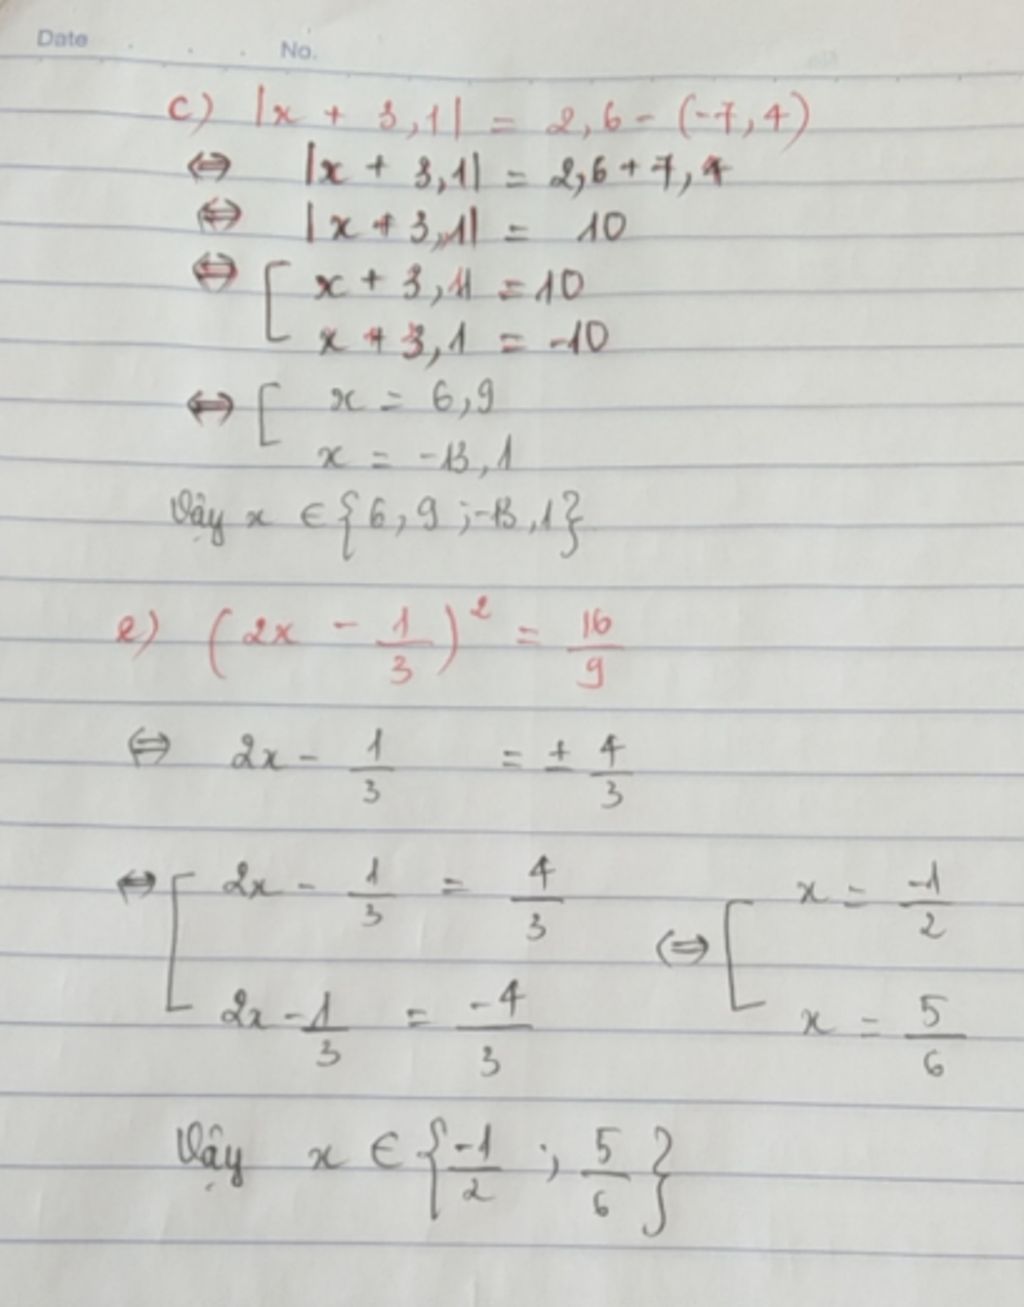 Date No.
c) |x + 3,1| = 2,6 - (-7,4)
⇔ |x + 3,1| = 2,6 + 7,4
⇔ |x + 3,1| = 10
⇔ [ x + 3,1 = 10
x + 3,1 = -10
⇔ [ x = 6,9
x = -13,1
Vậy x ∈ {6,9 ; -13,1}
e) (2x - 1/3)² = 16/9
⇔ 2x - 1/3 = ± 4/3
⇔ [ 2x - 1/3 = 4/3 ⇔ [ x = -1/2
2x - 1/3 = -4/3 x = 5/6
Vậy x ∈ {-1/2 ; 5/6}